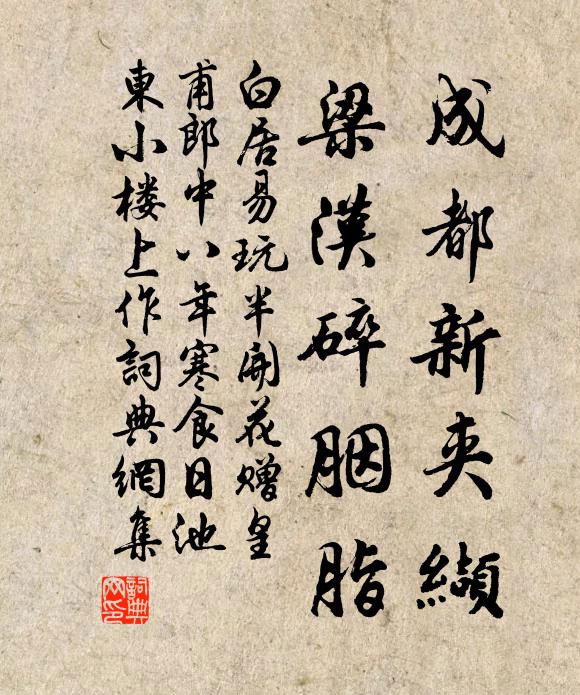 成都新夾纈
梁漢碎胭脂
白居易玩半開花贈皇
甫郎中八年寒食日池
東小楼上作詞典網集
詞典
网印